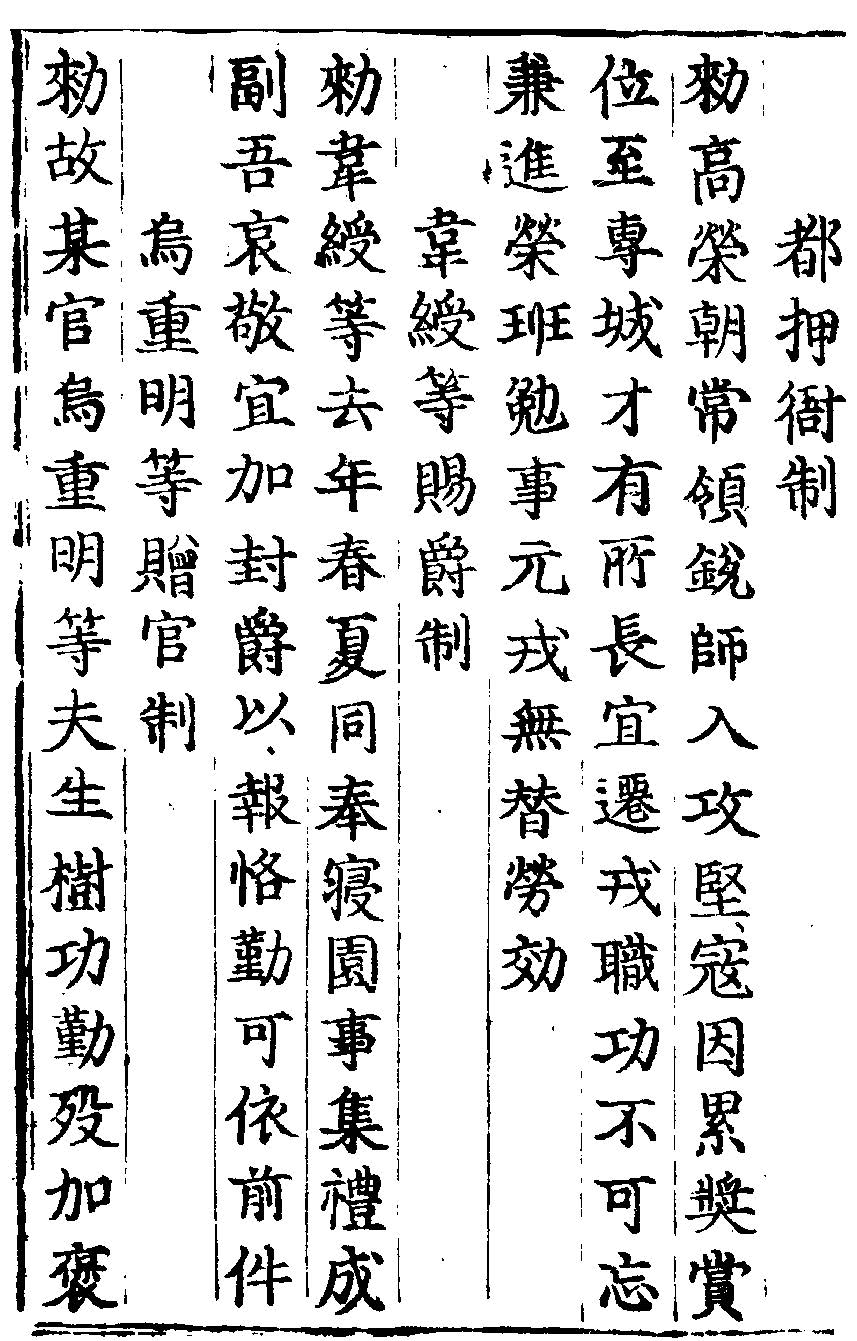 都押衙制
勑高榮朝常領銳師入攻堅寇因累奬賞
位至專城才有所長宜遷戎職功不可忘
兼進榮班勉事元戎無替勞効
韋綬等賜爵制
勑韋綬等去年春夏同奉寝園事集禮成
副吾哀敬宜加封爵以報恪勤可依前件
烏重明等贈官制
勑故某官烏重明等夫生樹功勤殁加褒